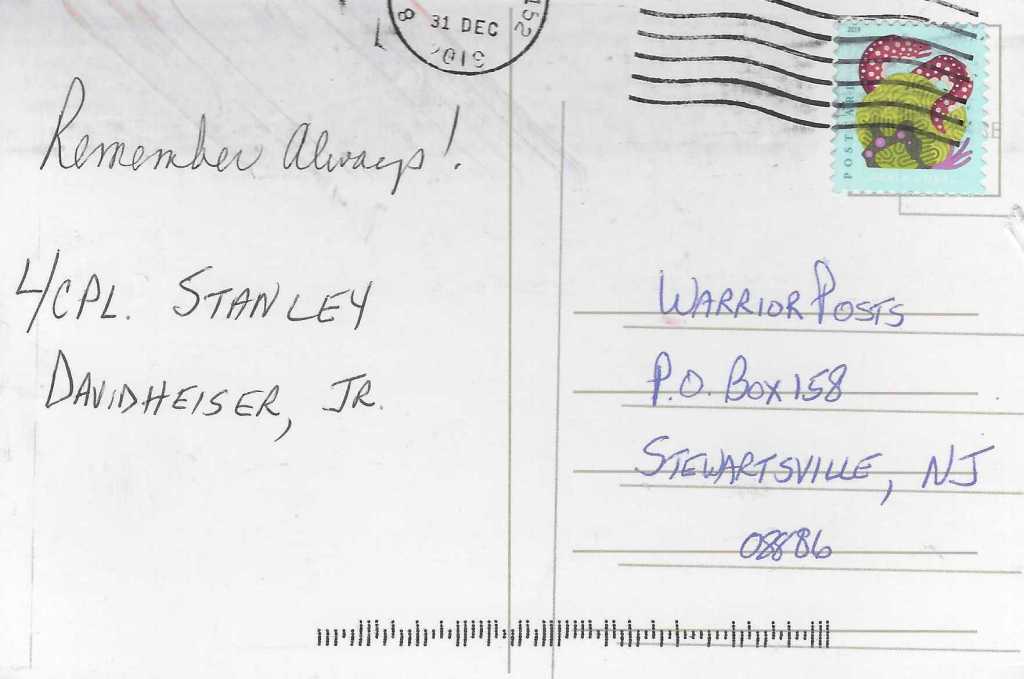 31 DEC
Remember Always!
L/CPL. STANLEY
DAVIDHEISER, JR.
2019
POSTCARD
WARRIOR POSTS
P.O. BOX 158
STEWARTSVILLE, NJ
08886